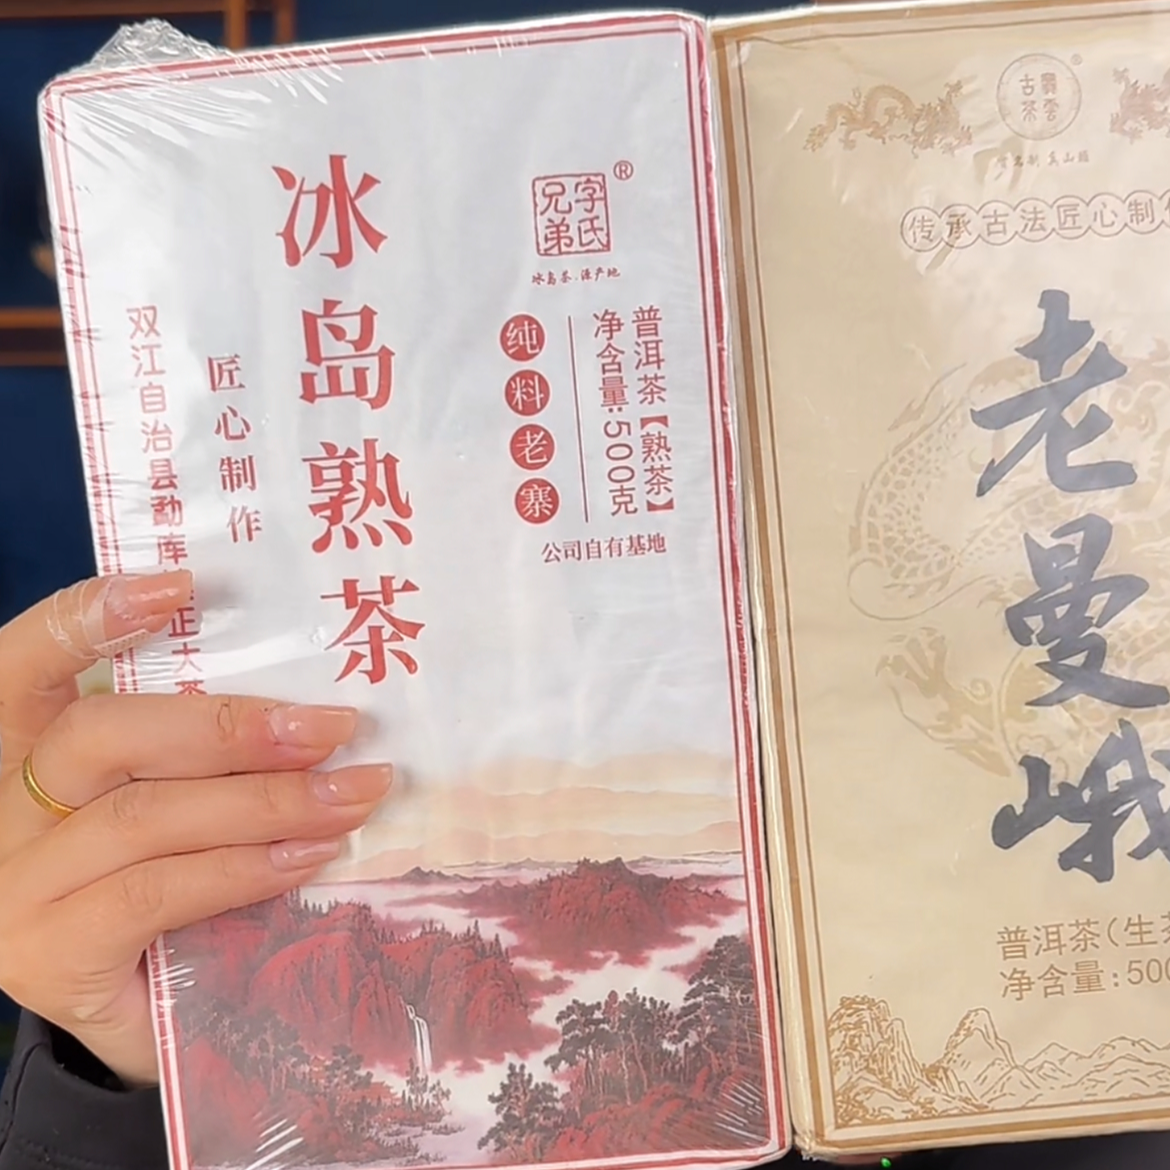 冰岛熟茶
匠心制作
双江自治县勐库
正大茶
字氏
兄弟
®
冰岛茶·源产地
普洱茶【熟茶】
净含量:500克
纯料老寨
公司自有基地
®
传承古法匠心制
老曼峨
普洱茶(生
净含量:500